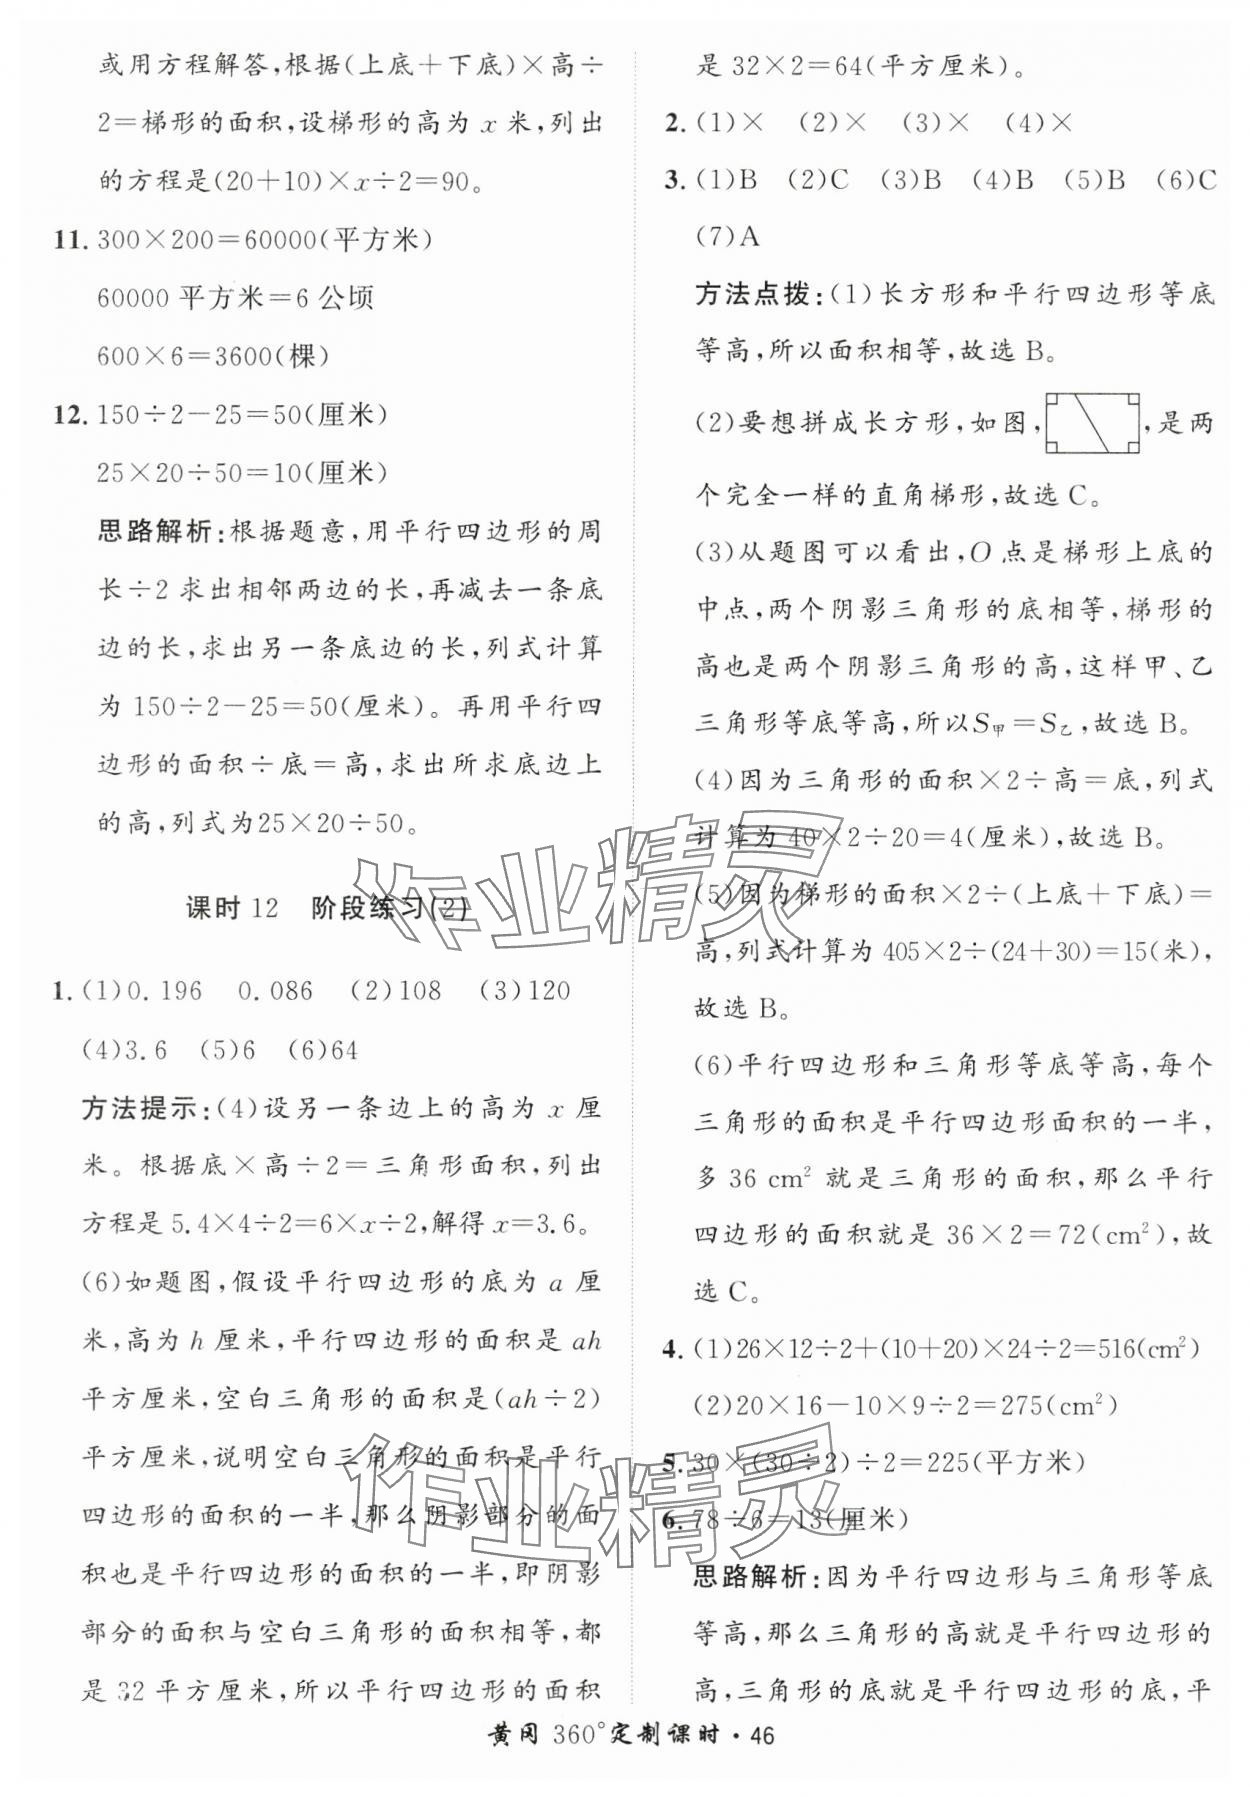 或用方程解答,根据(上底＋下底)×高÷
2＝梯形的面积,设梯形的高为 x 米,列出
的方程是(20＋10)×x÷2＝90。
11. 300×200＝60000(平方米)
60000 平方米＝6 公顷
600×6＝3600(棵)
12. 150÷2－25＝50(厘米)
25×20÷50＝10(厘米)
思路解析:根据题意,用平行四边形的周
长÷2 求出相邻两边的长,再减去一条底
边的长,求出另一条底边的长,列式计算
为 150÷2－25＝50(厘米)。再用平行四
边形的面积÷底＝高,求出所求底边上
的高,列式为25×20÷50。
课时 12 阶段练习(2)
1. (1)0.196 0.086 (2)108 (3)120
(4)3.6 (5)6 (6)64
方法提示:(4)设另一条边上的高为 x 厘
米。根据底×高÷2＝三角形面积,列出
方程是 5.4×4÷2＝6×x÷2,解得 x＝3.6。
(6)如题图,假设平行四边形的底为 a 厘
米,高为 h 厘米,平行四边形的面积是 ah
平方厘米,空白三角形的面积是(ah÷2)
平方厘米,说明空白三角形的面积是平行
四边形的面积的一半,那么阴影部分的面
积也是平行四边形的面积的一半,即阴影
部分的面积与空白三角形的面积相等,都
是 32 平方厘米,所以平行四边形的面积
是 32×2＝64(平方厘米)。
2. (1)× (2)× (3)× (4)×
3. (1)B (2)C (3)B (4)B (5)B (6)C
(7)A
方法点拨:(1)长方形和平行四边形等底
等高,所以面积相等,故选 B。
(2)要想拼成长方形,如图, ,是两
个完全一样的直角梯形,故选 C。
(3)从题图可以看出,O 点是梯形上底的
中点,两个阴影三角形的底相等,梯形的
高也是两个阴影三角形的高,这样甲、乙
三角形等底等高,所以S甲＝S乙,故选 B。
(4)因为三角形的面积×2÷高＝底,列式
计算为 40×2÷20＝4(厘米),故选 B。
(5)因为梯形的面积×2÷(上底＋下底)＝
高,列式计算为 405×2÷(24＋30)＝15(米),
故选 B。
(6)平行四边形和三角形等底等高,每个
三角形的面积是平行四边形面积的一半,
多 36 cm² 就是三角形的面积,那么平行
四边形的面积就是 36×2＝72(cm²),故
选 C。
4. (1)26×12÷2＋(10＋20)×24÷2＝516(cm²)
(2)20×16－10×9÷2＝275(cm²)
5. 30×(30÷2)÷2＝225(平方米)
6. 78÷6＝13(厘米)
思路解析:因为平行四边形与三角形等底
等高,那么三角形的高就是平行四边形的
高,三角形的底就是平行四边形的底,平
黄冈 360°定制课时·46
作业精灵
作业精灵